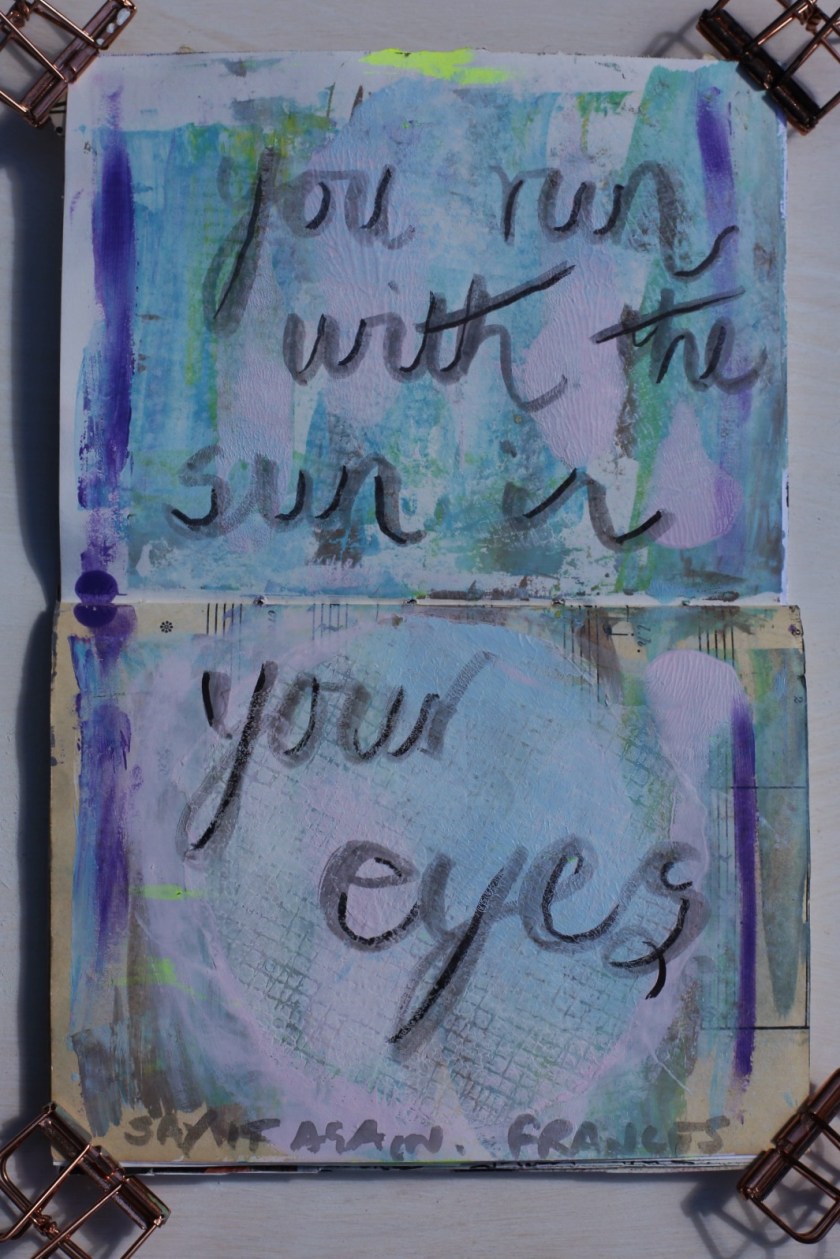 you run
with the
sun in
your
eyes
SAY IT AGAIN. FRANCES